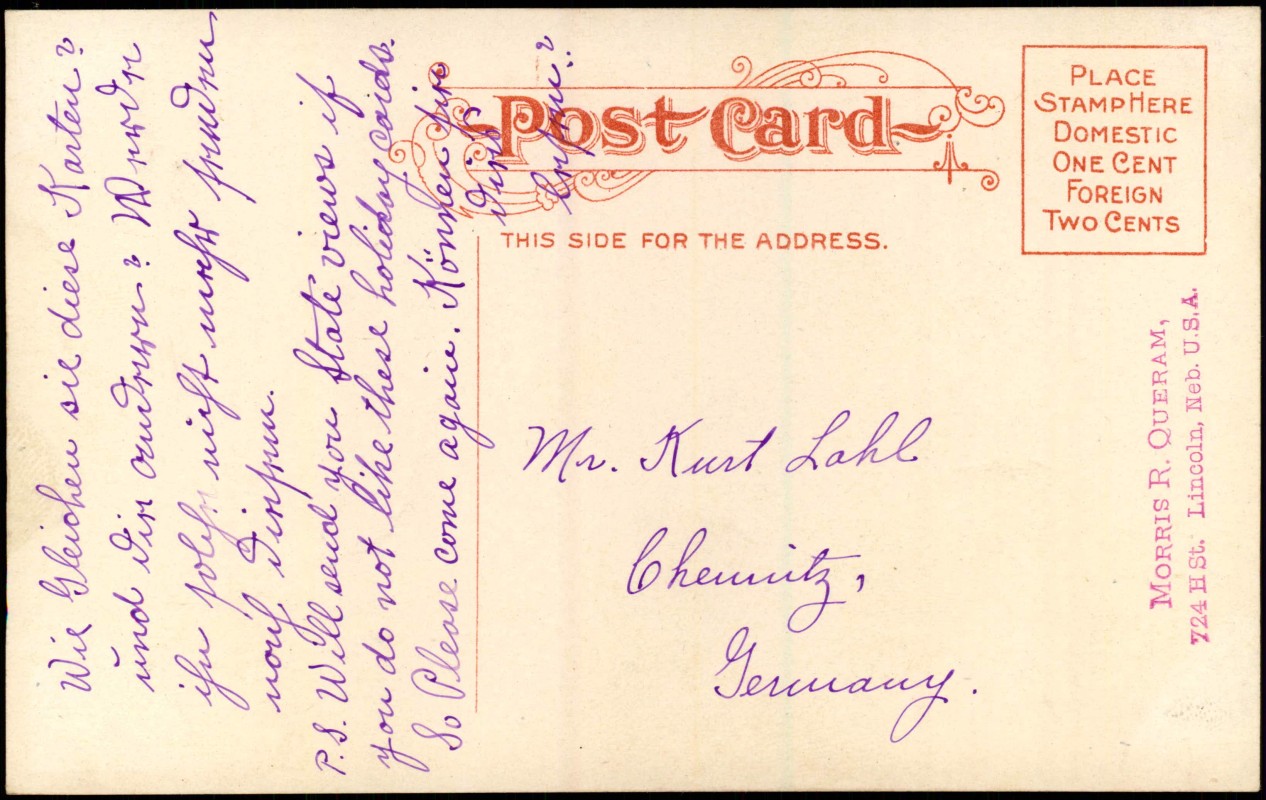 Wie Gleichen sie diese Karten?
und die anderen? Werde
ihn solche nicht mehr senden
nach diesen.
P.S. Will send you State views if
you do not like these holiday cards.
So Please come again. Können sie
dies
lesen?
Post Card
THIS SIDE FOR THE ADDRESS.
PLACE
STAMP HERE
DOMESTIC
ONE CENT
FOREIGN
TWO CENTS
Mr. Kurt Lohl
Chemnitz,
Germany.
MORRIS R. QUERAM,
724 H St. Lincoln, Neb. U.S.A.